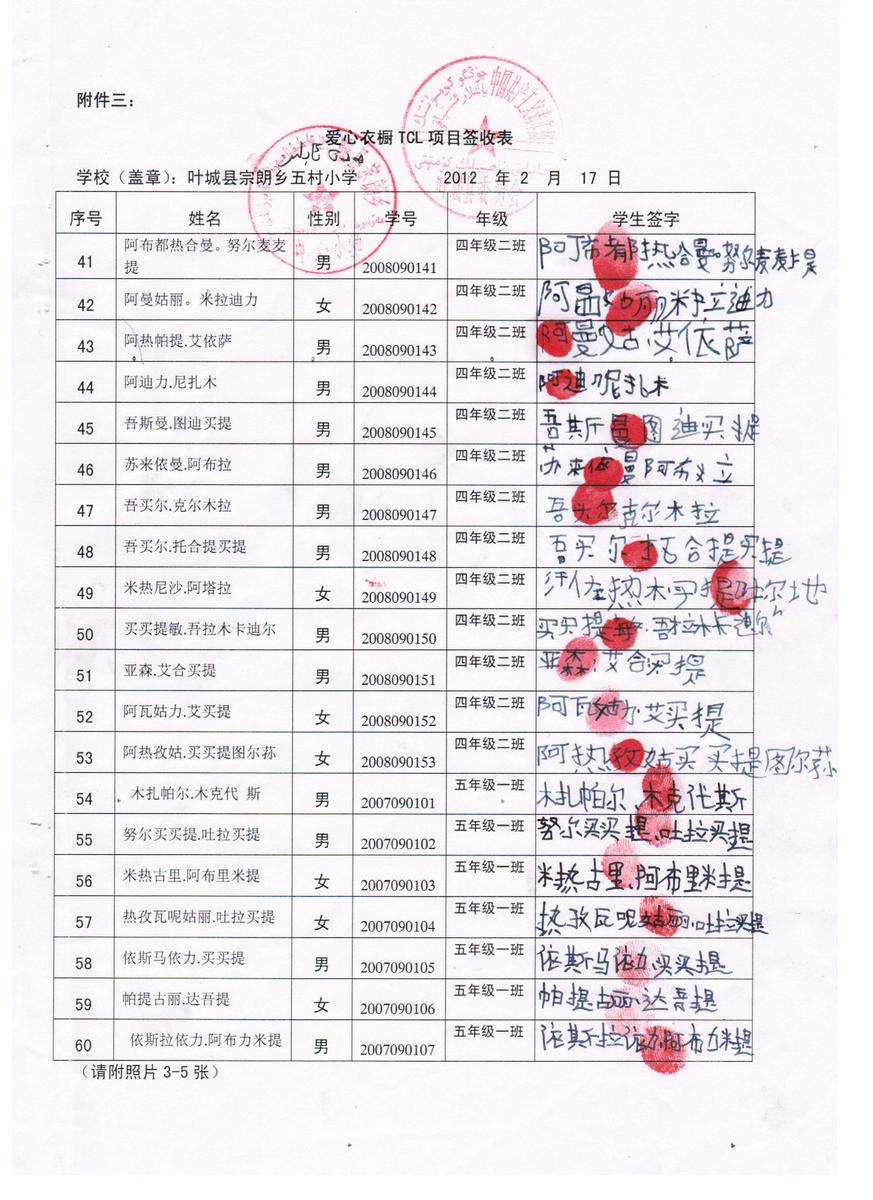 附件三：
爱心衣橱 TCL 项目签收表
学校（盖章）：叶城县宗朗乡五村小学 2012 年 2 月 17 日
序号 姓名 性别 学号 年级 学生签字
41 阿布都热合曼。努尔麦麦提 男 2008090141 四年级二班 阿布都热合曼努尔麦麦提
42 阿曼姑丽。米拉迪力 女 2008090142 四年级二班
43 阿热帕提.艾依萨 男 2008090143 四年级二班 阿曼姑.艾依萨
44 阿迪力.尼扎木 男 2008090144 四年级二班
45 吾斯曼.图迪买提 男 2008090145 四年级二班 吾斯曼图迪买提
46 苏来依曼.阿布拉 男 2008090146 四年级二班
47 吾买尔.克尔木拉 男 2008090147 四年级二班 吾买尔克尔木拉
48 吾买尔.托合提买提 男 2008090148 四年级二班 吾买尔托合提买提
49 米热尼沙.阿塔拉 女 2008090149 四年级二班
50 买买提敏.吾拉木卡迪尔 男 2008090150 四年级二班
51 亚森.艾合买提 男 2008090151 四年级二班 亚森.艾合买提
52 阿瓦姑力.艾买提 女 2008090152 四年级二班
53 阿热孜姑.买买提图尔荪 女 2008090153 四年级二班 阿热孜姑买买提图尔荪
54 木扎帕尔.木克代 斯 男 2007090101 五年级一班 木扎帕尔.木克代斯
55 努尔买买提.吐拉买提 男 2007090102 五年级一班 努尔买买提.吐拉买提
56 米热古里.阿布里米提 女 2007090103 五年级一班 米热古里.阿布里米提
57 热孜瓦呢姑丽.吐拉买提 女 2007090104 五年级一班 热孜瓦呢姑丽.吐拉买提
58 依斯马依力.买买提 男 2007090105 五年级一班 依斯马依力.买买提
59 帕提古丽.达吾提 女 2007090106 五年级一班 帕提古丽.达吾提
60 依斯拉依力.阿布力米提 男 2007090107 五年级一班 依斯拉依力.阿布力米提
（请附照片 3-5 张）